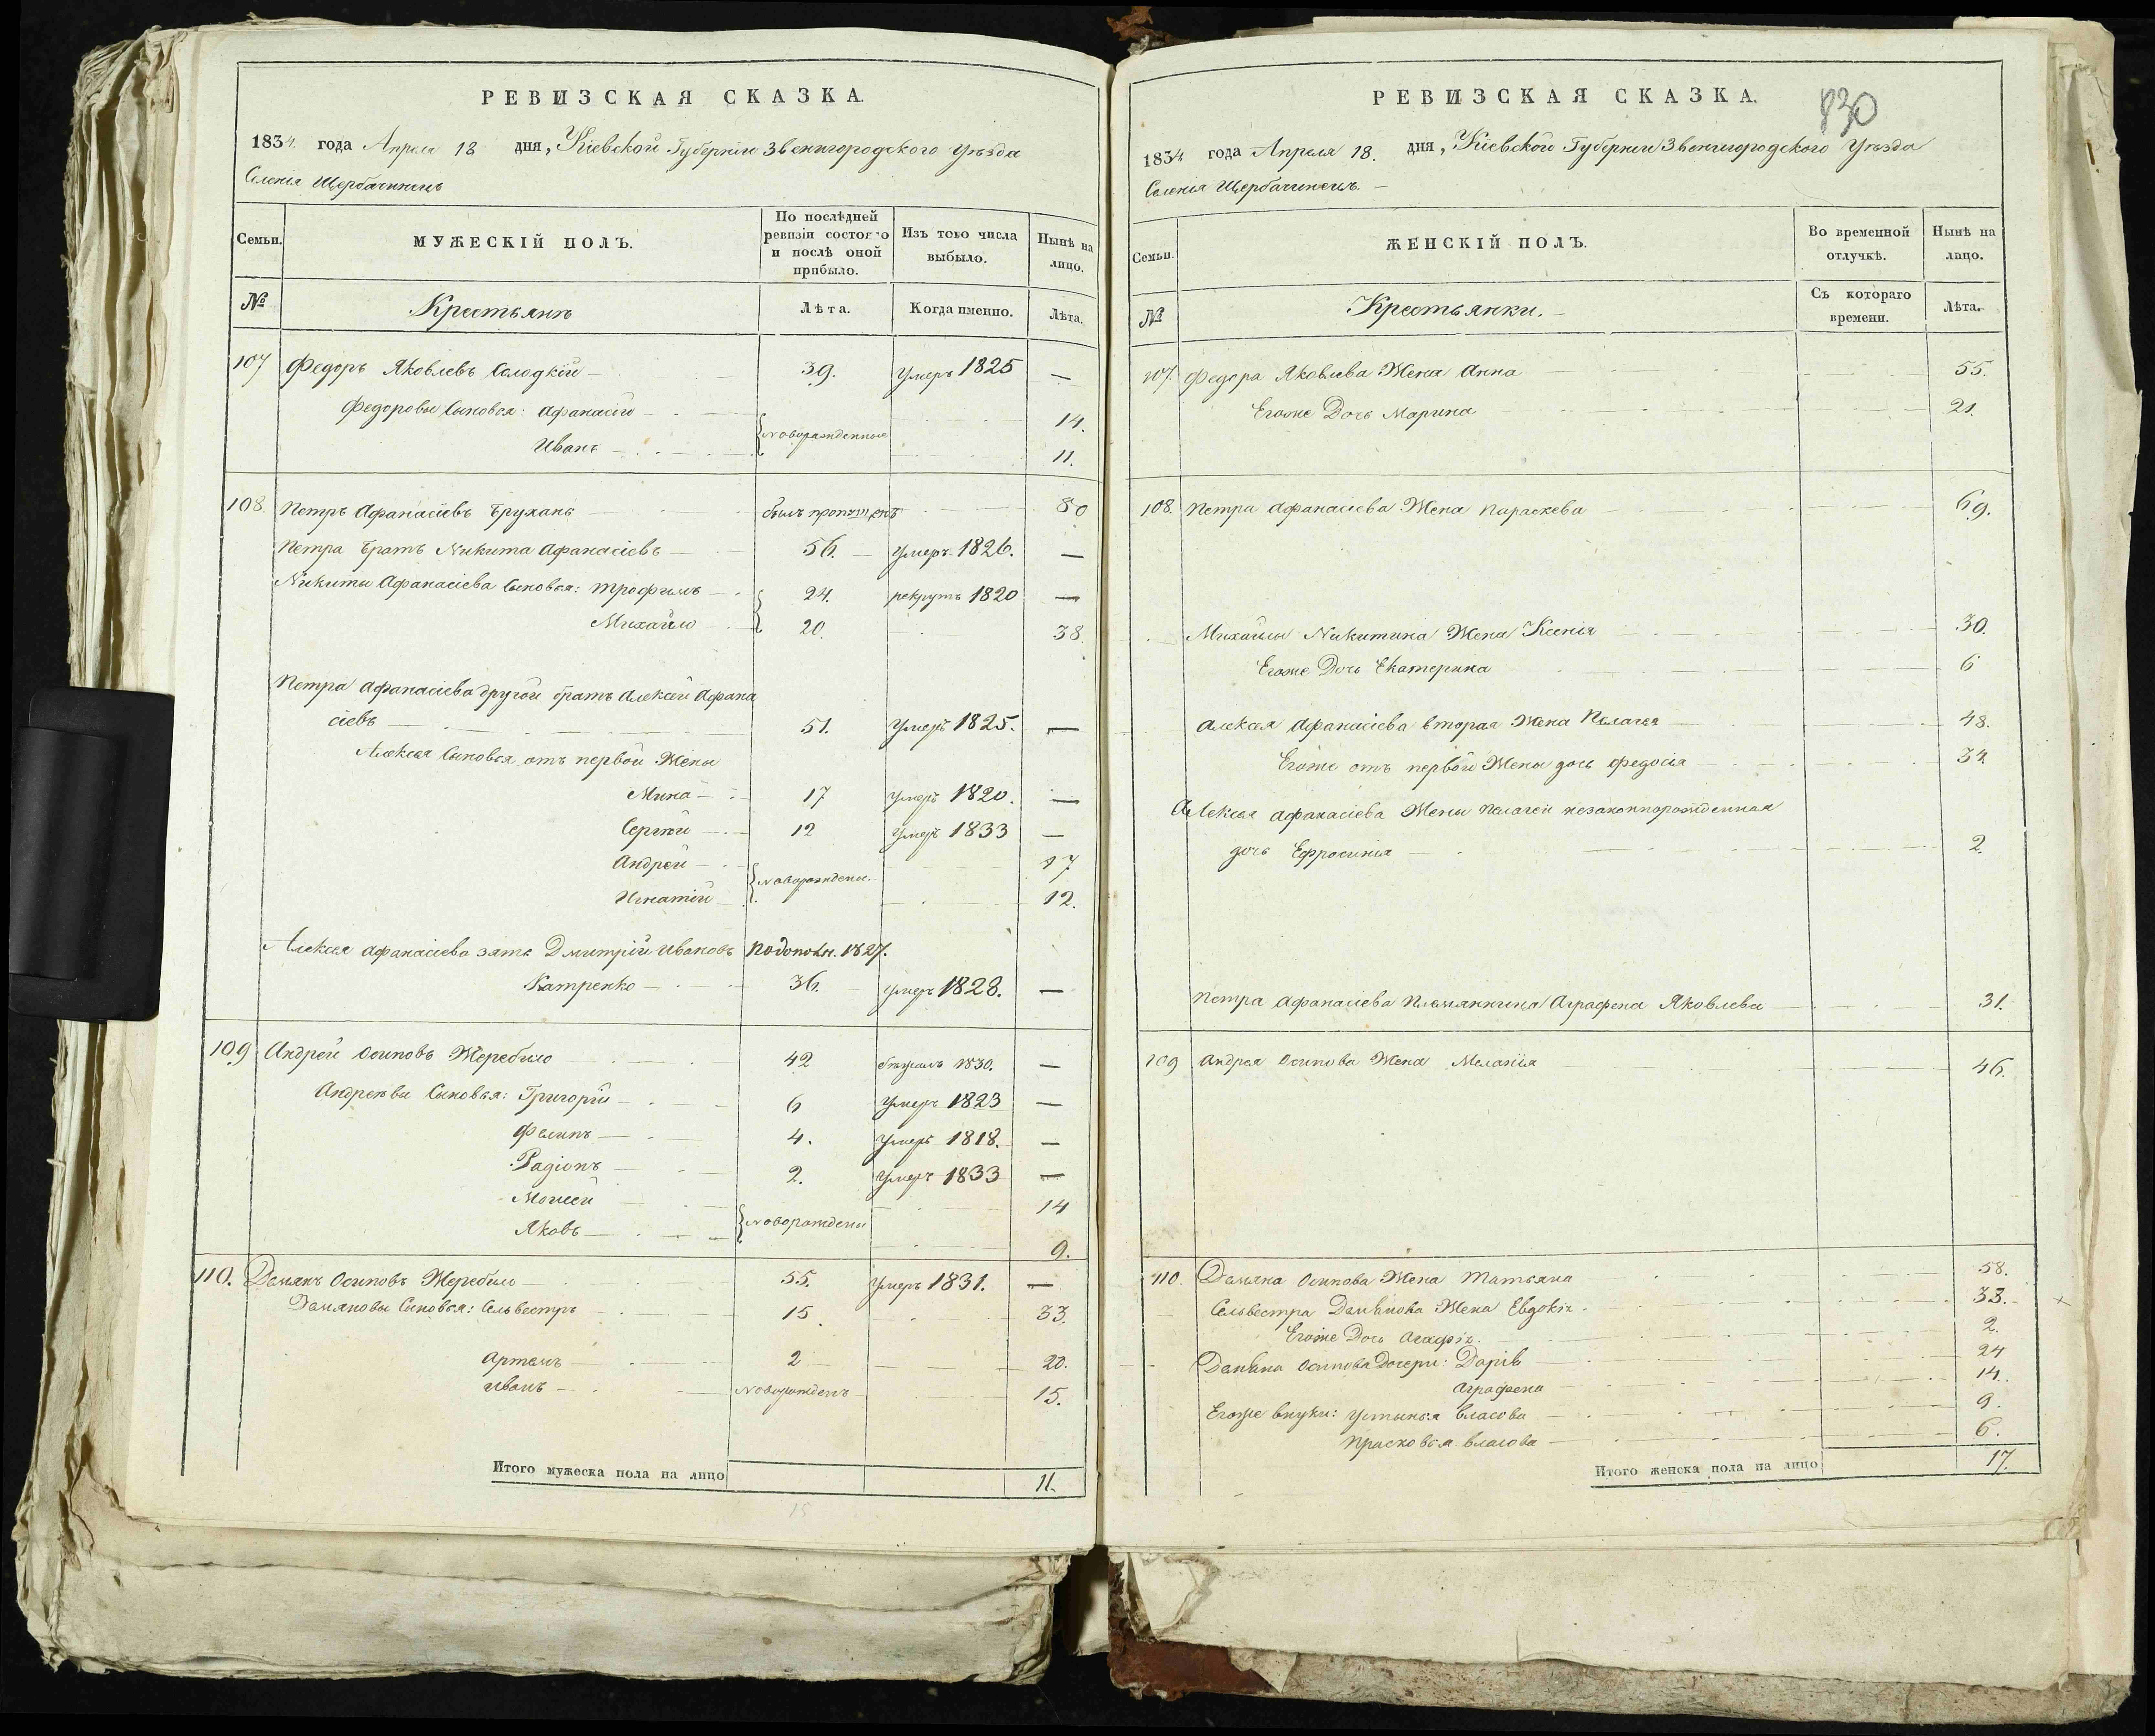 РЕВИЗСКАЯ СКАЗКА.
1834. года Апреля 18 дня, Кіевской Губерніи Звенигородского Уѣзда
Селенія Щербачинецъ
Семьи. МУЖЕСКІЙ ПОЛЪ. По послѣдней ревизіи состояло и послѣ оной прибыло. Изъ того числа выбыло. Нынѣ на лицо.
№ Крестьянъ Лѣта. Когда именно. Лѣта.
107 Федоръ Яковлевъ Солодкій — 39. умеръ 1825 —
Федоровы Сыновья: Афанасій — новорожденные 14.
Иванъ — 11.
108. Петръ Афанасіевъ Бруханъ былъ пропущенъ 80
Петра братъ Никита Афанасіевъ — 56. — умеръ 1826. —
Никиты Афанасіева Сыновья: Трофимъ — 24. рекрутъ 1820 —
Михайло 20. 38.
Петра Афанасіева другой братъ Алексей Афана
сіевъ — 51. умеръ 1825. —
Алексея Сыновья отъ первой Жены
Мина — 17 умеръ 1820. —
Сергей — 12 умеръ 1833 —
Андрей — новорождены. 17
Игнатій — 12.
Алексея Афанасіева зять Дмитрій Ивановъ 1827.
Катренко — 36. умеръ 1828. —
109 Андрей Осиповъ Жеребило 42 бѣжалъ 1830. —
Андреевы Сыновья: Григорій — 6 умеръ 1823 —
Филипъ — 4. умеръ 1818. —
Радіонъ — 2. умеръ 1833 —
Моисей новорождены 14
Яковъ — 9.
110. Демянъ Осиповъ Жеребило — 55. умеръ 1831. —
Демяновы Сыновья: Сельвестръ — 15. 33.
Артемъ — 2 20.
Иванъ — новорожденъ 15.
Итого мужеска пола на лицо 11.
15
830
РЕВИЗСКАЯ СКАЗКА.
1834 года Апреля 18. дня, Кіевской Губерніи Звенигородского Уѣзда
Селенія Щербачинецъ. —
Семьи. ЖЕНСКІЙ ПОЛЪ. Во временной отлучкѣ. Нынѣ на лицо.
№ Крестьянки. — Съ котораго времени. Лѣта.
107. Федора Яковлева Жена Анна 55.
Егоже Дочь Марина 21.
108. Петра Афанасіева Жена Параскева 69.
Михайлы Никитина Жена Ксенія 30.
Егоже Дочь Екатерина 6
Алексея Афанасіева вторая Жена Пелагея 48.
Егоже отъ первой Жены дочь Федосія — 34.
Алексея Афанасіева Жены Пелагеи незаконнорожденная
дочь Ефросинія 2.
Петра Афанасіева Племянница Аграфена Яковлева 31.
109 Андрея Осипова Жена Меланія 46.
110. Демяна Осипова Жена Татьяна 58.
Сельвестра Демянова Жена Евдокія. 33.
Егоже Дочь Агафія. 2.
Демяна Осипова Дочери: Дарія 24
Аграфена 14.
Егоже внуки: Устинья Власова 9.
Прасковья Власова 6.
Итого женска пола на лицо 17.